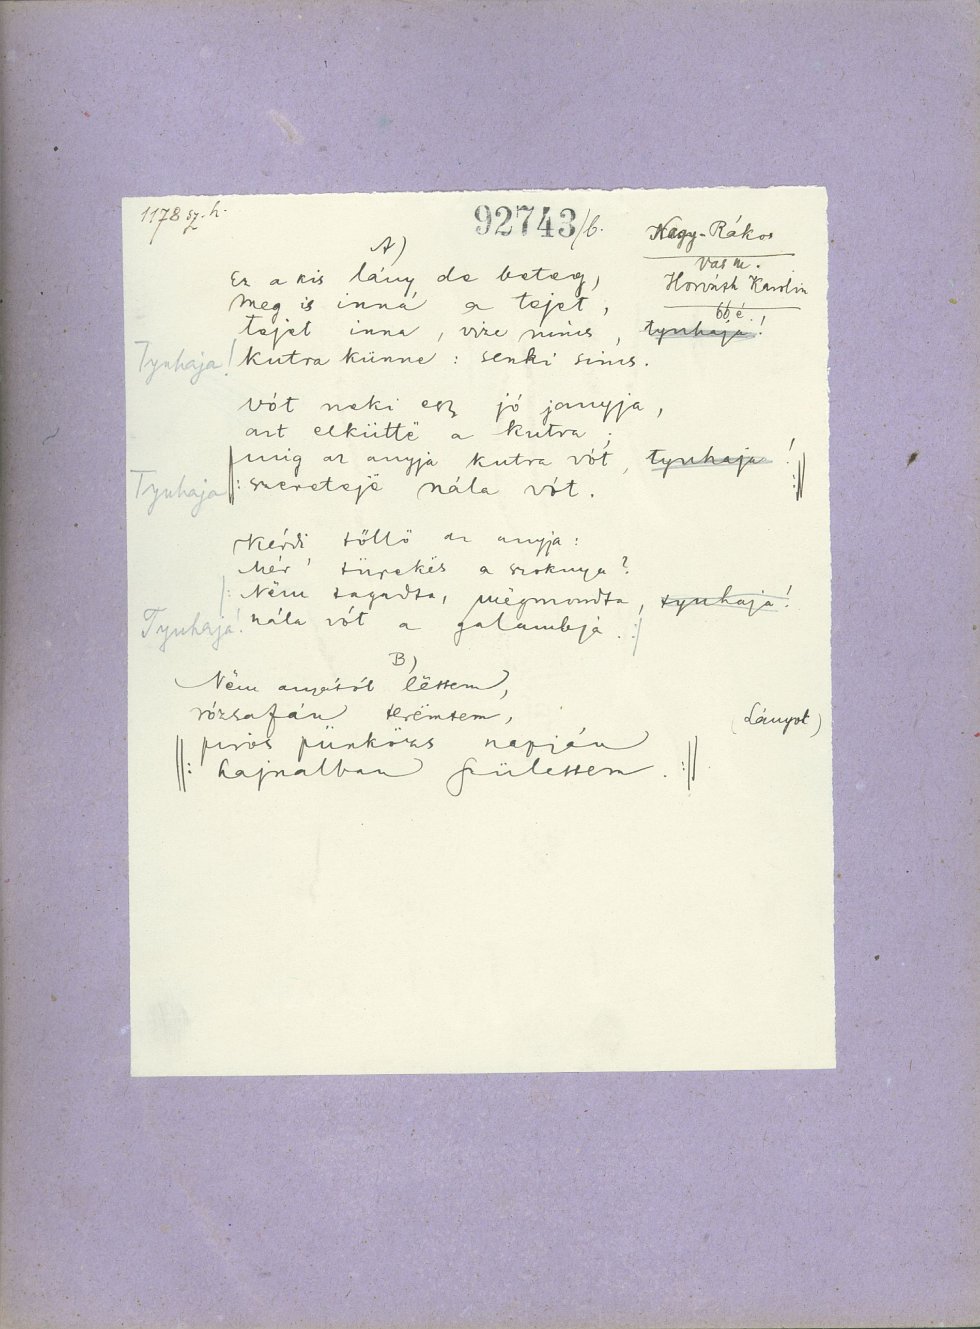 1178 sz. h.
92743/b.
Nagy-Rákos
Vas m.
Horváth Karolin
66 é.
A)
Ez a kis lány de beteg,
Meg is inná a tejet,
tejet inna, vize nincs, tyuhaja!
Tyuhaja! kutra künne: senki sincs.
Vót neki esz jó janyja,
azt elkűttë a kutra;
míg az anyja kutra vót, tyuhaja!
Tyuhaja ||: szeretejë nála vót. :||
Kérdi tőllö az anyja:
Mér' türekës a szoknya?
|: Nëm tagadta, mëgmondta, tyuhaja!
Tyuhaja! nála vót a galambja. :|
B)
Nëm anyátót lëttem,
rózsafán terëmtem,
(Lányok)
piros pünközs napján
||: hajnalban születtem. :||